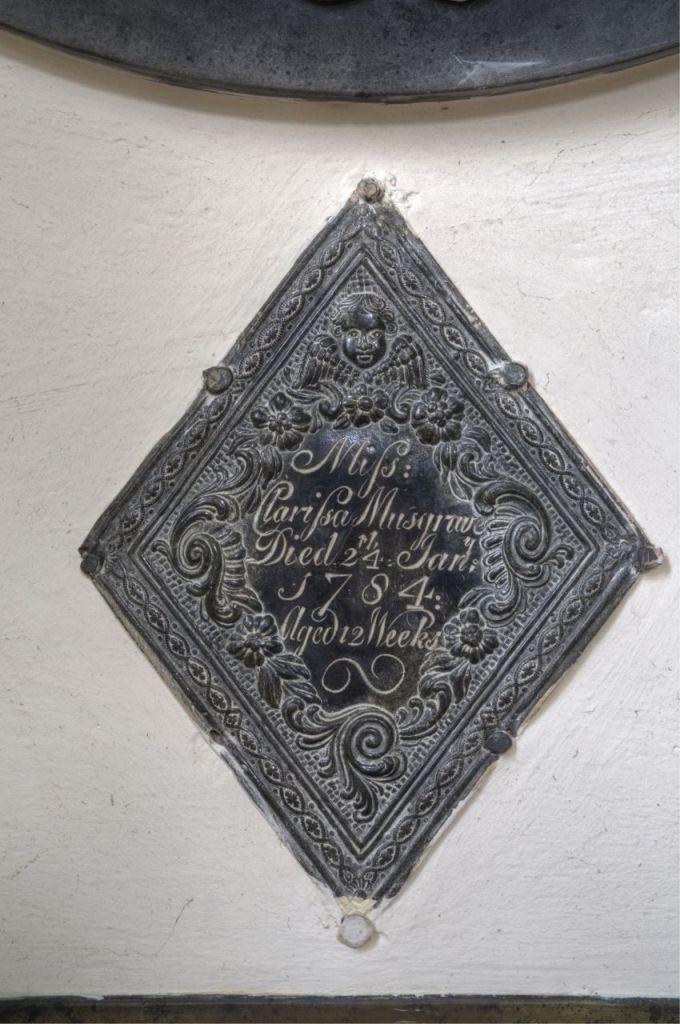 Miſs:
Clariſsa Musgrave
Died 24.th Jan.y:
1784:
Aged 12 Weeks